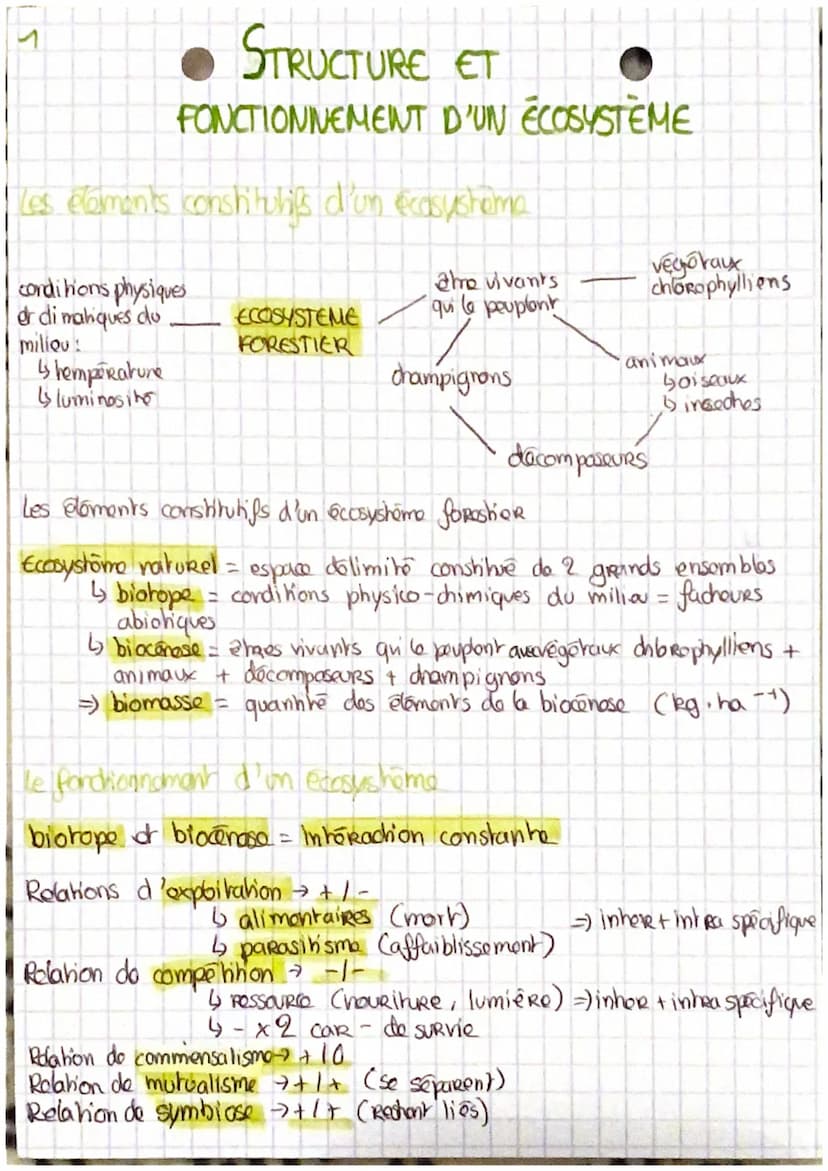 1
STRUCTURE ET
FONCTIONNEMENT D'UN ÉCOSYSTÈME
Les éléments constitutifs d'un écosystème
conditions physiques
et climatiques du
milieu :
↳ température
↳ luminosité
ECOSYSTEME
FORESTIER
être vivants
qui le peuplent
végétaux
chlorophylliens
champignons
animaux
↳ oiseaux
↳ insectes
décomposeurs
Les éléments constitutifs d'un écosystème forestier
Ecosystème naturel = espace délimité constitué de 2 grands ensembles
↳ biotope = conditions physico-chimiques du milieu = facteurs
abiotiques
↳ biocénose = êtres vivants qui le peuplent avec végétaux chlorophylliens +
animaux + décomposeurs + champignons
⇒ biomasse = quantité des éléments de la biocénose (kg.ha⁻¹)
Le fonctionnement d'un écosystème
biotope et biocénose = intéraction constante
Relations d'exploitation → +/-
↳ alimentaires (mort)
↳ parasitisme (affaiblissement)
⇒ inter + intra spécifique
Relation de compétition → -/-
↳ ressource (nouriture, lumière) ⇒ inter + intra spécifique
↳ - x2 car - de survie
Relation de commensalisme → +/0
Relation de mutualisme → +/+ (se séparent)
Relation de symbiose → +/+ (restent liés)